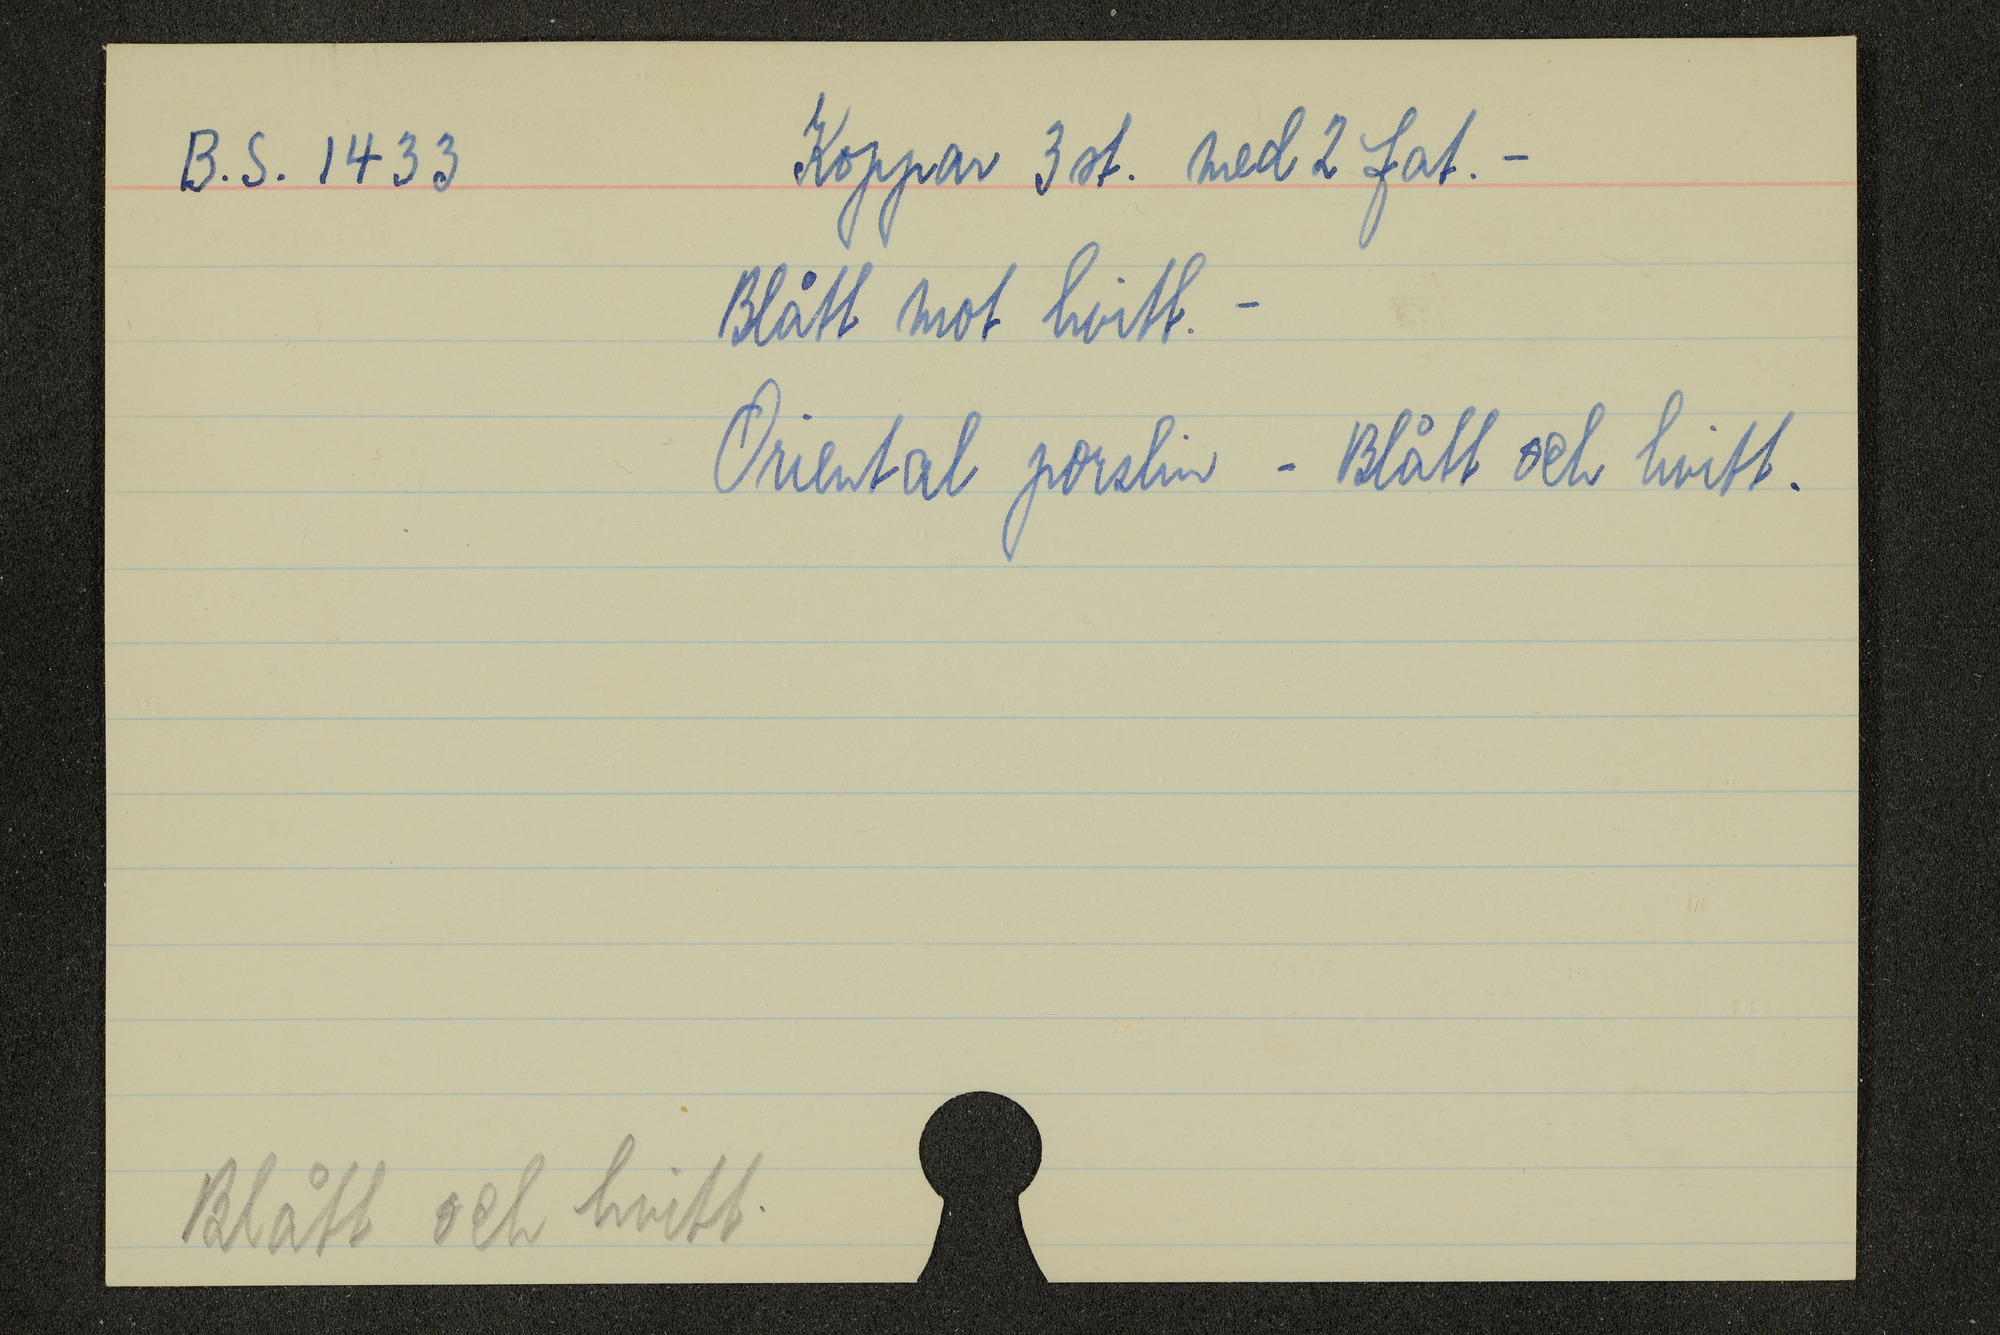 B.S. 1433 Koppar 3 st. med 2 fat. -
Blått mot hvitt. -
Oriental porslin - Blått och hvitt.
Blått och hvitt.